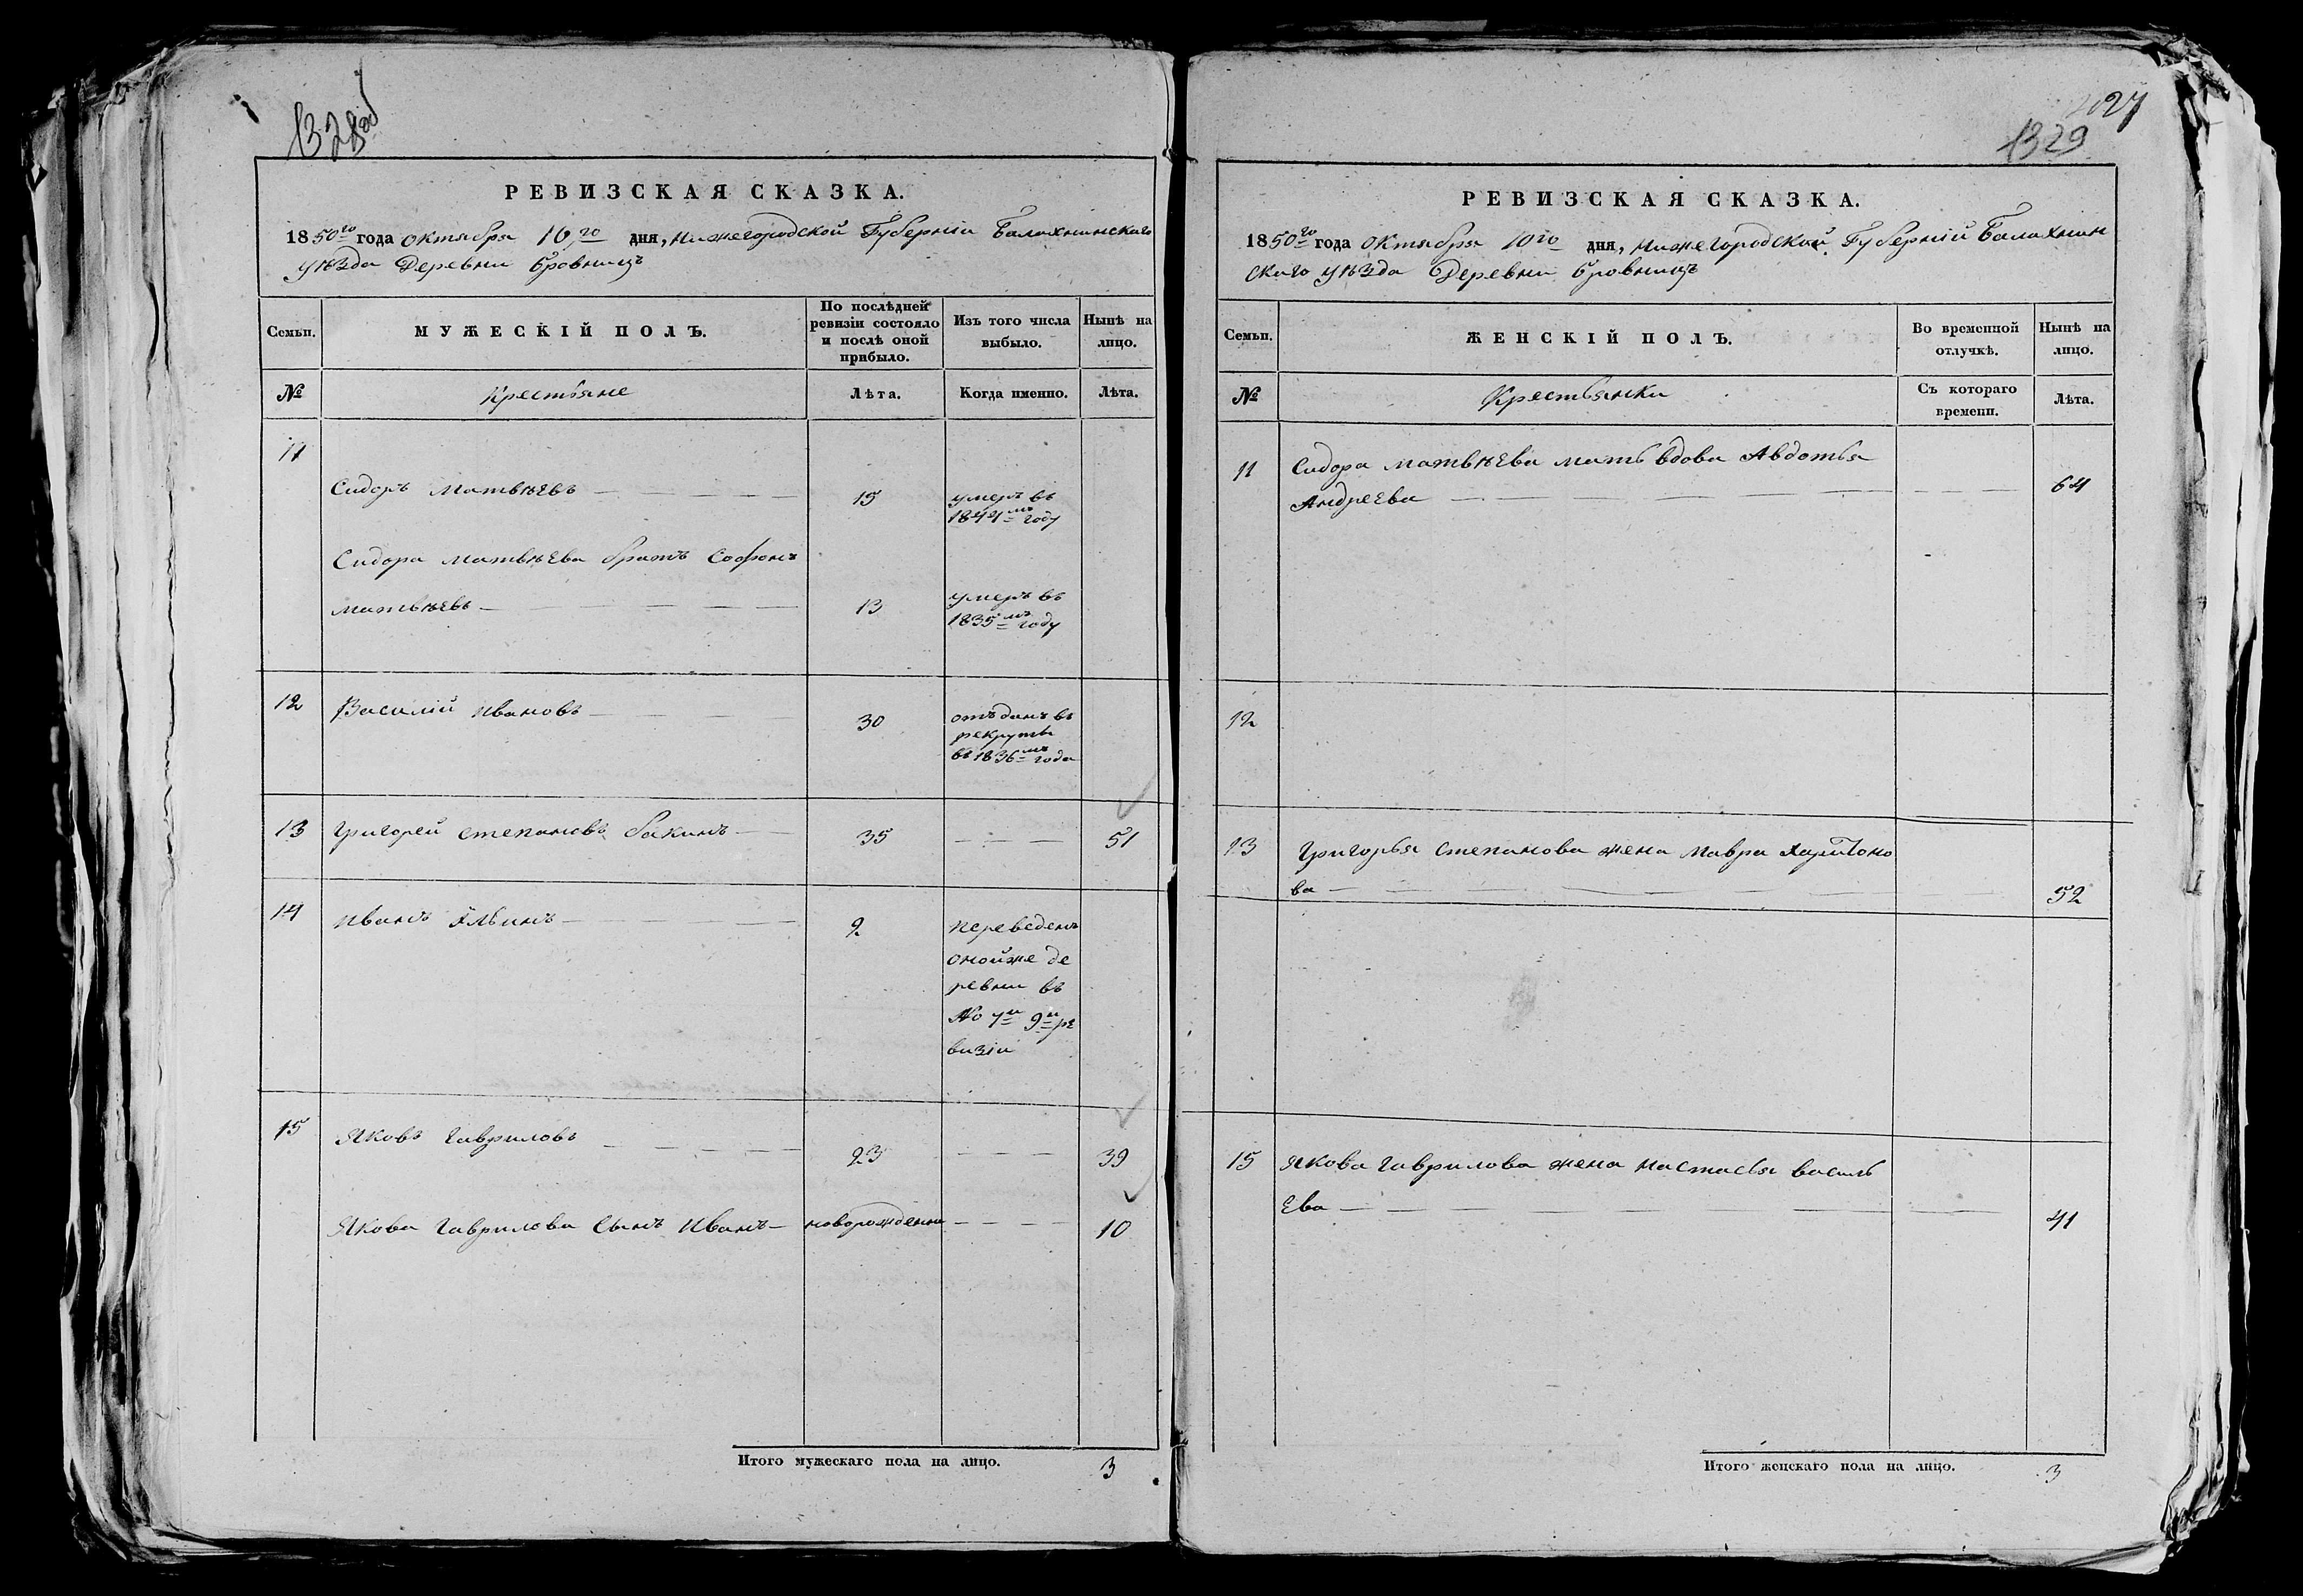 1328об
РЕВИЗСКАЯ СКАЗКА.
1850го года октября 10го дня, Нижегородской Губернiи Балахнинскаго
уѣзда Деревни Бровницъ
Семьи.
МУЖЕСКIЙ ПОЛЪ.
По послѣдней
ревизiи состояло
и послѣ оной
прибыло.
Изъ того числа
выбыло.
Нынѣ на
лицо.
№
Крестьяне
Лѣта.
Когда именно.
Лѣта.
11
Сидоръ Матвѣевъ 15 умеръ въ
1844мъ году
Сидора Матвѣева братъ Софонъ
Матвѣевъ 13 умеръ въ
1835мъ году
12 Василiй Ивановъ 30 отъданъ въ
рекруты
въ 1836мъ года
13 Григорей Степановъ Бакинъ 35 51
14 Иванъ Ильинъ 2 переведенъ
онойже де
ревни въ
No 7й 9й ре
визiи
15 Яковъ Гавриловъ 23 39
Якова Гаврилова сынъ Иванъ новорожденны 10
Итого мужескаго пола на лицо. 3
1027
1329
РЕВИЗСКАЯ СКАЗКА.
1850го года октября 10го дня, Нижегородской Губернiй Балахнин
скаго уѣзда Деревни Бровницъ
Семьи.
ЖЕНСКIЙ ПОЛЪ.
Во временной
отлучкѣ.
Нынѣ на
лицо.
№
Крестьянки
Съ котораго
времени.
Лѣта.
11 Сидора Матвѣева мать вдова Авдотья
Андреева 64
12
13 Григорья Степанова жена Мавра Харитоно
ва 52
15 Якова Гаврилова жена Настасья Василь
Ева 41
Итого женскаго пола на лицо. 3